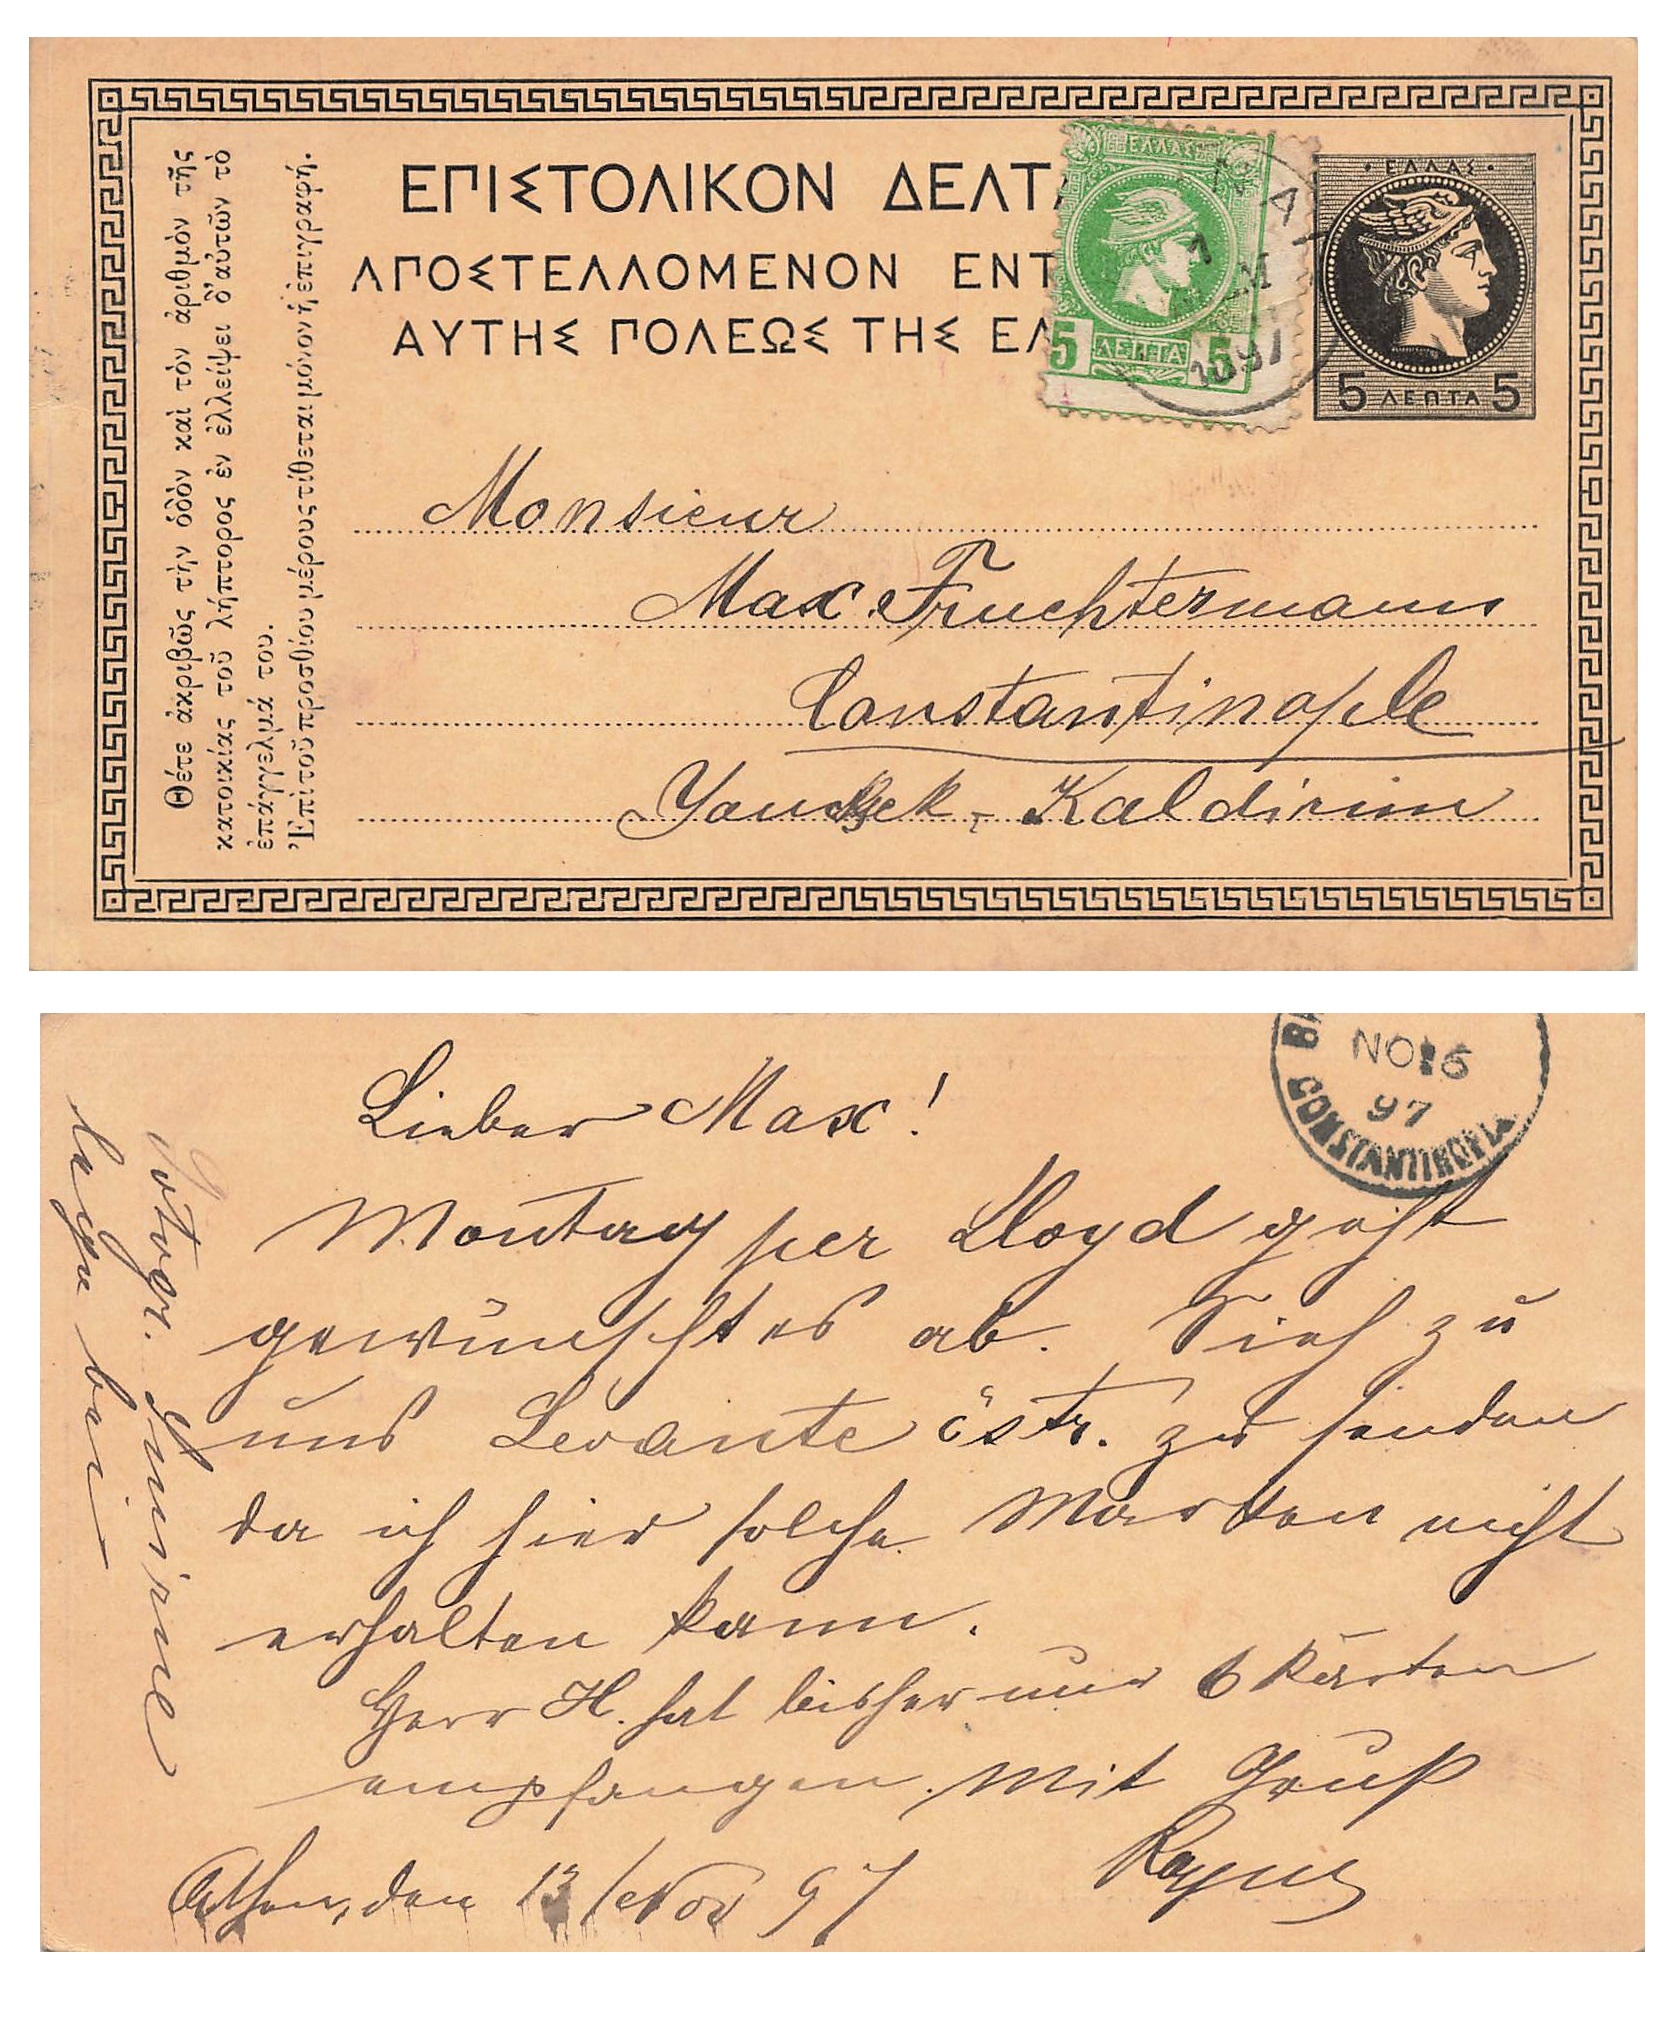 ΕΠΙΣΤΟΛΙΚΟΝ ΔΕΛΤΑ
ΑΠΟΣΤΕΛΛΟΜΕΝΟΝ ΕΝΤ
ΑΥΤΗΣ ΠΟΛΕΩΣ ΤΗΣ ΕΛ
Θέτε ἀκριβῶς τὴν ὁδὸν καὶ τὸν ἀριθμὸν τῆς
κατοικίας τοῦ λήπτορος ἐν ἐλλείψει δ'αὐτῶν τὸ
ἐπάγγελμά του.
Ἐπὶ τοῦ προσθίου μέρους τίθεται μόνον ἡ ἐπιγραφή.
ΕΛΛΑΣ
5 ΛΕΠΤΑ 5
1897
·ΕΛΛΑΣ·
5 ΛΕΠΤΑ 5
Monsieur
Max Fruchtermann
Constantinople
Kaldirim
NO 16
97
CONSTANTINOPLE
Lieber Max!
Montag per Lloyd geht
gewünschtes ab. Sieh zu
uns Levante östr. zu senden
da ich hier solche Marken nicht
erhalten kann.
Herr H. hat bisher nur 6 Karten
empfangen. Mit Gruß
Athen, den 13/Nov 97
Fotogr. Smirne
lege bei